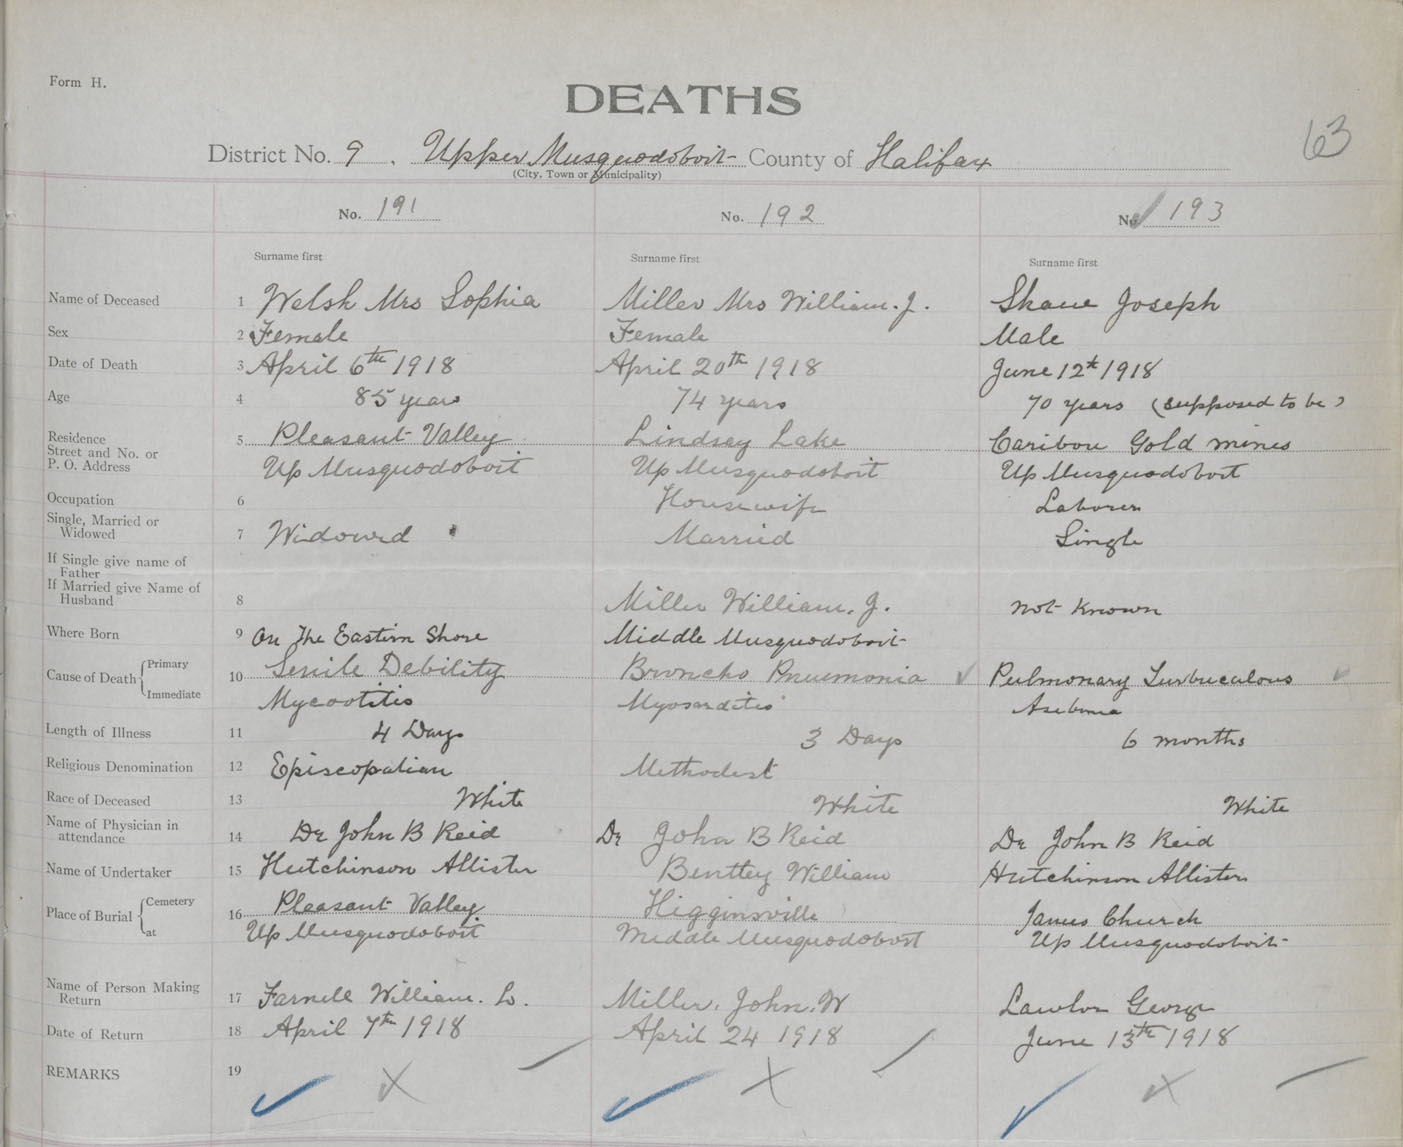 Form H.
DEATHS
63
District No. 9. Upper Musquodoboit County of Halifax
(City, Town or Municipality)
No. 191 No. 192 No. 193
Surname first Surname first Surname first
Name of Deceased 1 Welsh Mrs Sophia Miller Mrs William. J. Joseph
Sex 2 Female Female Male
Date of Death 3 April 6th 1918 April 20th 1918 June 12th 1918
Age 4 85 years 74 years 70 years (supposed to be)
Residence 5 Pleasant Valley Lindsay Lake Caribou Gold mines
Street and No. or
P. O. Address Up Musquodoboit Up Musquodoboit Up Musquodoboit
Occupation 6 Housewife Laborer
Single, Married or
Widowed 7 Widowed Married Single
If Single give name of
Father
If Married give Name of
Husband 8 Miller William. J. not known
Where Born 9 On The Eastern Shore Middle Musquodoboit
Cause of Death { Primary 10 Senile Debility Broncho Pnuemonia Pulmonary
Immediate
Length of Illness 11 4 Days 3 Days 6 months
Religious Denomination 12 Episcopalian Methodist
Race of Deceased 13 White White White
Name of Physician in
attendance 14 Dr John B Reid Dr John B Reid Dr John B Reid
Name of Undertaker 15 Hutchinson Allister Bentley William Hutchinson Allister
Place of Burial { Cemetery 16 Pleasant Valley Higginsville James Church
at Up Musquodoboit Middle Musquodoboit Up Musquodoboit
Name of Person Making
Return 17 Farnell William. L. Miller, John. W Lawlor George
Date of Return 18 April 7th 1918 April 24 1918 June 13th 1918
REMARKS 19